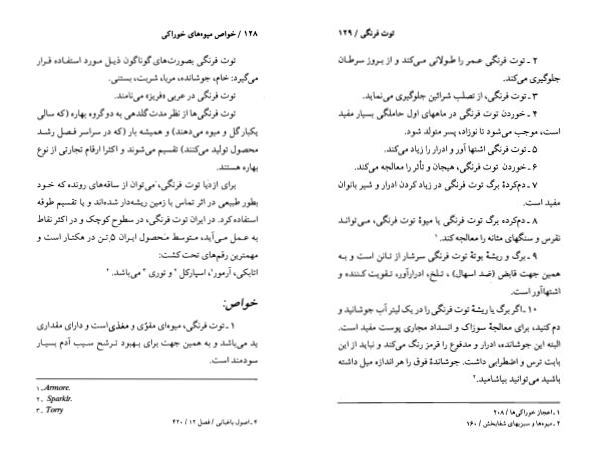 ۱۲۸ / خواص میوه‌های خوراکی
توت فرنگی بصورت‌های گوناگون ذیل مورد استفاده قرار
می‌گیرد: خام، جوشانده، مربا، شربت، بستنی.
توت فرنگی در عربی «فریز» می‌نامند.
توت فرنگی‌ها از نظر مدت گلدهی به دو گروه بهاره (که سالی
یکبار گل و میوه می‌دهند) و همیشه بار (که در سراسر فصل رشد
محصول تولید می‌کنند) تقسیم می‌شوند و اکثرا ارقام تجارتی از نوع
بهاره هستند.
برای ازدیا توت فرنگی، می‌توان از ساقه‌های رونده که خود
بطور طبیعی در اثر تماس با زمین ریشه‌دار شده‌اند و یا تقسیم طوقه
استفاده کرد. در ایران توت فرنگی، در سطوح کوچک و در اکثر نقاط
به عمل می‌آید، متوسط محصول ایران ۵ تن در هکتار است و
مهمترین رقم‌های تحت کشت:
اتابکی، آرمور۱، اسپارکل ۲ و توری ۳ می‌باشد. ۴
خواص:
۱ ـ توت فرنگی، میوه‌ای مقوّی و مغذی است و دارای مقداری
ید می‌باشد و به همین جهت برای بهبود ترشح سیب آدم بسیار
سودمند است.
۱ ـ Armore.
۲ ـ Sparklr.
۳ ـ Torry
۴ ـ اصول باغبانی / فصل ۱۲ / ۴۲۰
توت فرنگی / ۱۲۹
۲ ـ توت فرنگی عمر را طولانی می‌کند و از بروز سرطان
جلوگیری می‌کند.
۳ ـ توت فرنگی، از تصلب شرائین جلوگیری می‌نماید.
۴ ـ خوردن توت فرنگی در ماههای اول حاملگی بسیار مفید
است، موجب می‌شود تا نوزاد، پسر متولد شود.
۵ ـ توت فرنگی اشتها آور و ادرار را زیاد می‌کند.
۶ ـ خوردن توت فرنگی، هیجان و تأثر را معالجه می‌کند.
۷ ـ دم‌کردۀ برگ توت فرنگی در زیاد کردن ادرار و شیر بانوان
مفید است.
۸ ـ دم‌کرده برگ توت فرنگی یا میوۀ توت فرنگی، می‌تواند
نقرس و سنگهای مثانه را معالجه کند. ۱
۹ ـ برگ و ریشۀ بوتۀ توت فرنگی سرشار از تانن است و به
همین جهت قابض (ضد اسهال)، تلخ، ادرارآور، تقویت کننده و
اشتهاآور است.
۱۰ ـ اگر برگ یا ریشۀ توت فرنگی را در یک لیتر آب جوشانید و
دم کنید، برای معالجۀ سوزاک و انسداد مجاری پوست مفید است.
البته این جوشانده، ادرار و مدفوع را قرمز رنگ می‌کند و نباید از این
بابت ترس و اضطرابی داشت. جوشاندۀ فوق را هر اندازه میل داشته
باشید می‌توانید بیاشامید. ۲
۱ ـ اعجاز خوراکی‌ها / ۲۰۸
۲ ـ میوه‌ها و سبزیهای شفابخش / ۱۶۰